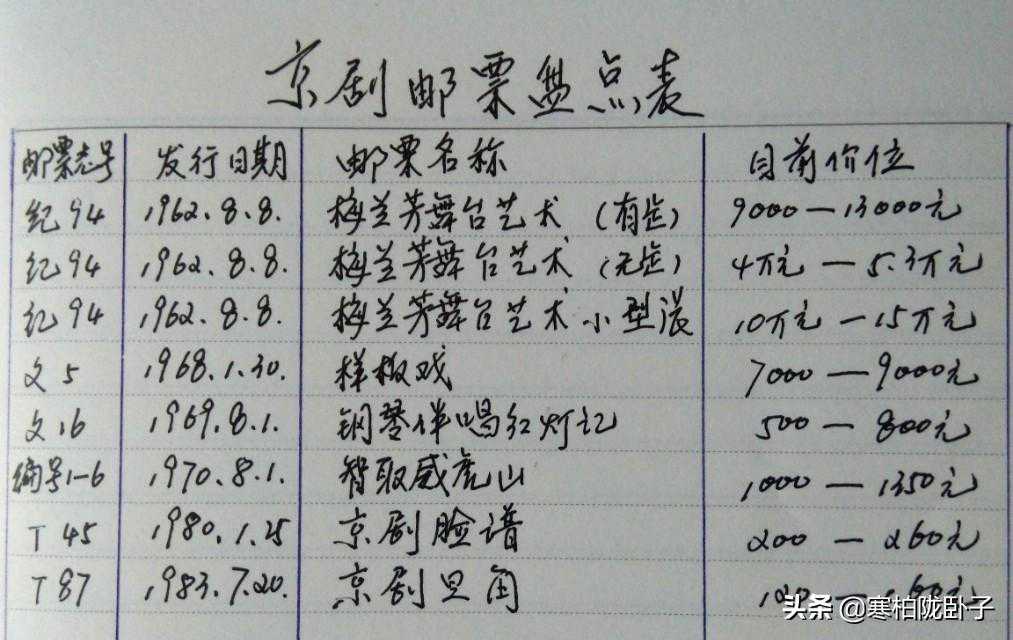 京剧邮票盘点表
邮票志号 发行日期 邮票名称 目前价位
纪94 1962.8.8. 梅兰芳舞台艺术（有齿） 9000—13000元
纪94 1962.8.8. 梅兰芳舞台艺术（无齿） 4万元—5.3万元
纪94 1962.8.8. 梅兰芳舞台艺术小型张 10万元—15万元
文5 1968.1.30. 样板戏 7000—9000元
文16 1969.8.1. 钢琴伴唱红灯记 500—800元
编号1-6 1970.8.1. 智取威虎山 1000—1350元
T45 1980.1.25 京剧脸谱 200—260元
T87 1983.7.20. 京剧旦角
头条 @寒柏陇卧子